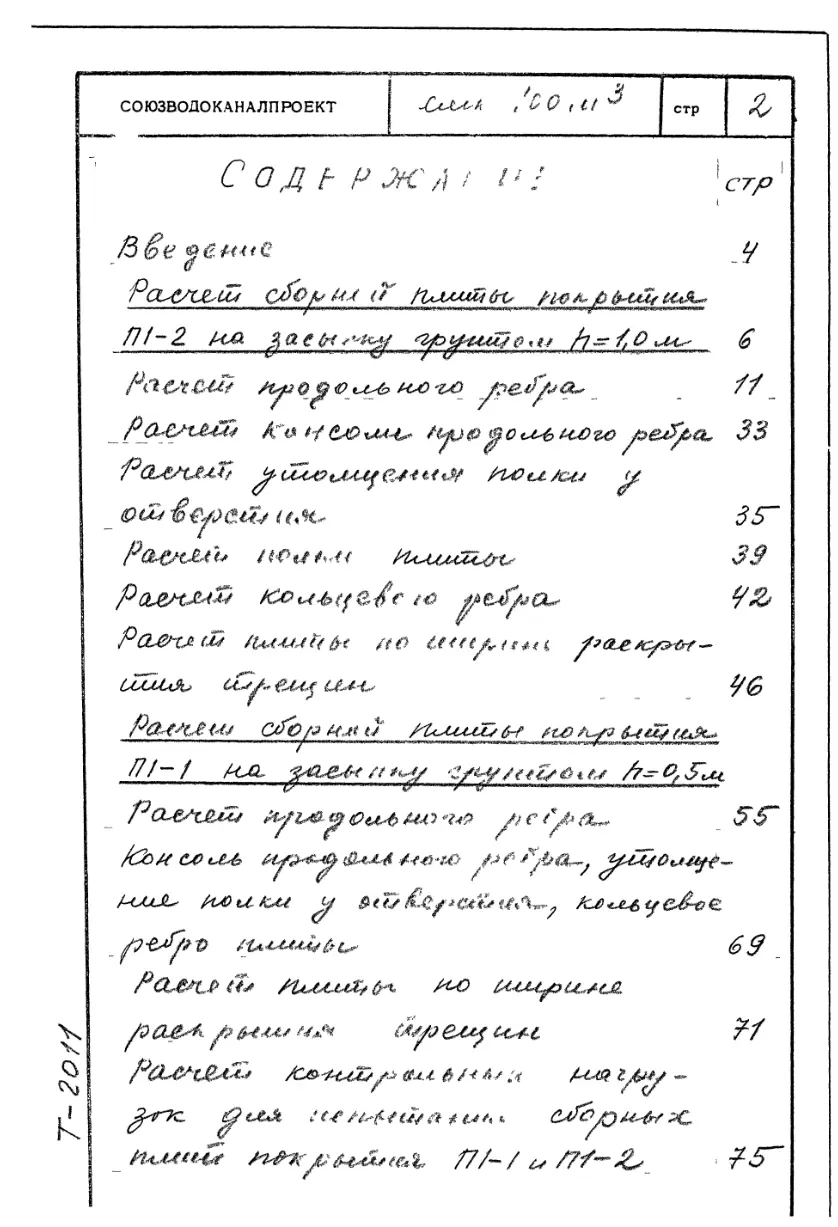 СОЮЗВОДОКАНАЛПРОЕКТ 100 м3 стр 2
СОДЕРЖАНИЕ стр
Введение 4
Расчет сборной плиты покрытия
П1-2 на засыпку грунтом h=1,0м 6
Расчет продольного ребра 11
Расчет консоли продольного ребра 33
Расчет утолщения полки у
отверстия 35
Расчет полки плиты 39
Расчет кольцевого ребра 42
Расчет плиты по ширине раскры-
тия трещин 46
Расчет сборной плиты покрытия
П1-1 на засыпку грунтом h=0,5м
Расчет продольного ребра 55
Консоль продольного ребра, утолще-
ние полки у отверстия, кольцевое
ребро плиты 69
Расчет плиты по ширине
раскрытия трещин 71
Расчет контрольных нагру-
зок для испытания сборных
плит покрытия П1-1 и П1-2 75
Т-2011